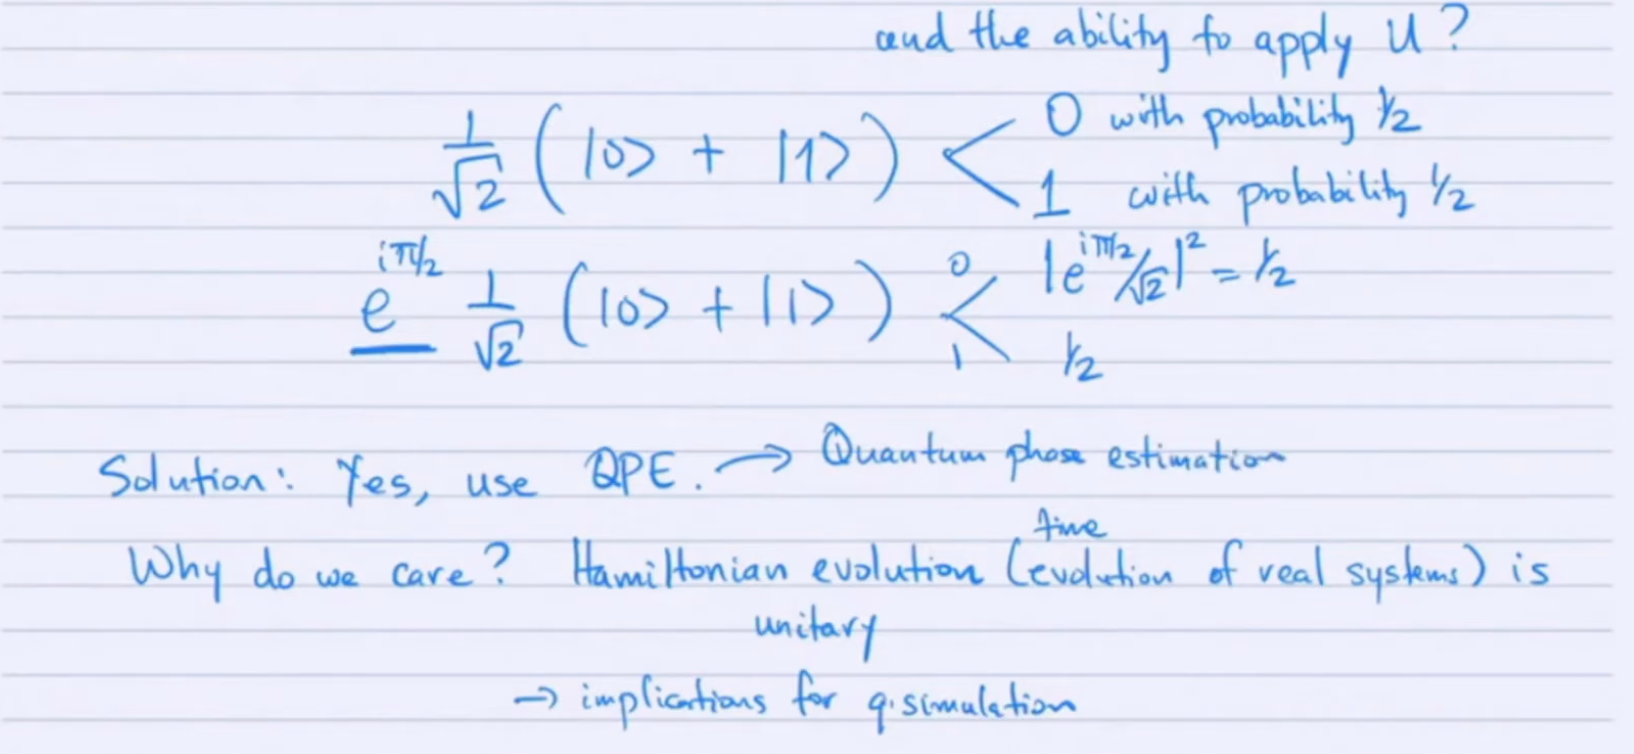 and the ability to apply U?
1/√2 (|0> + |1>) < 0 with probability 1/2
1 with probability 1/2
e^{iπ/2} 1/√2 (|0> + |1>) < 0 |e^{iπ/2}/√2|² = 1/2
1 1/2
Solution: Yes, use QPE. → Quantum phase estimation
time
Why do we care? Hamiltonian evolution (evolution of real systems) is
unitary
→ implications for q. simulation